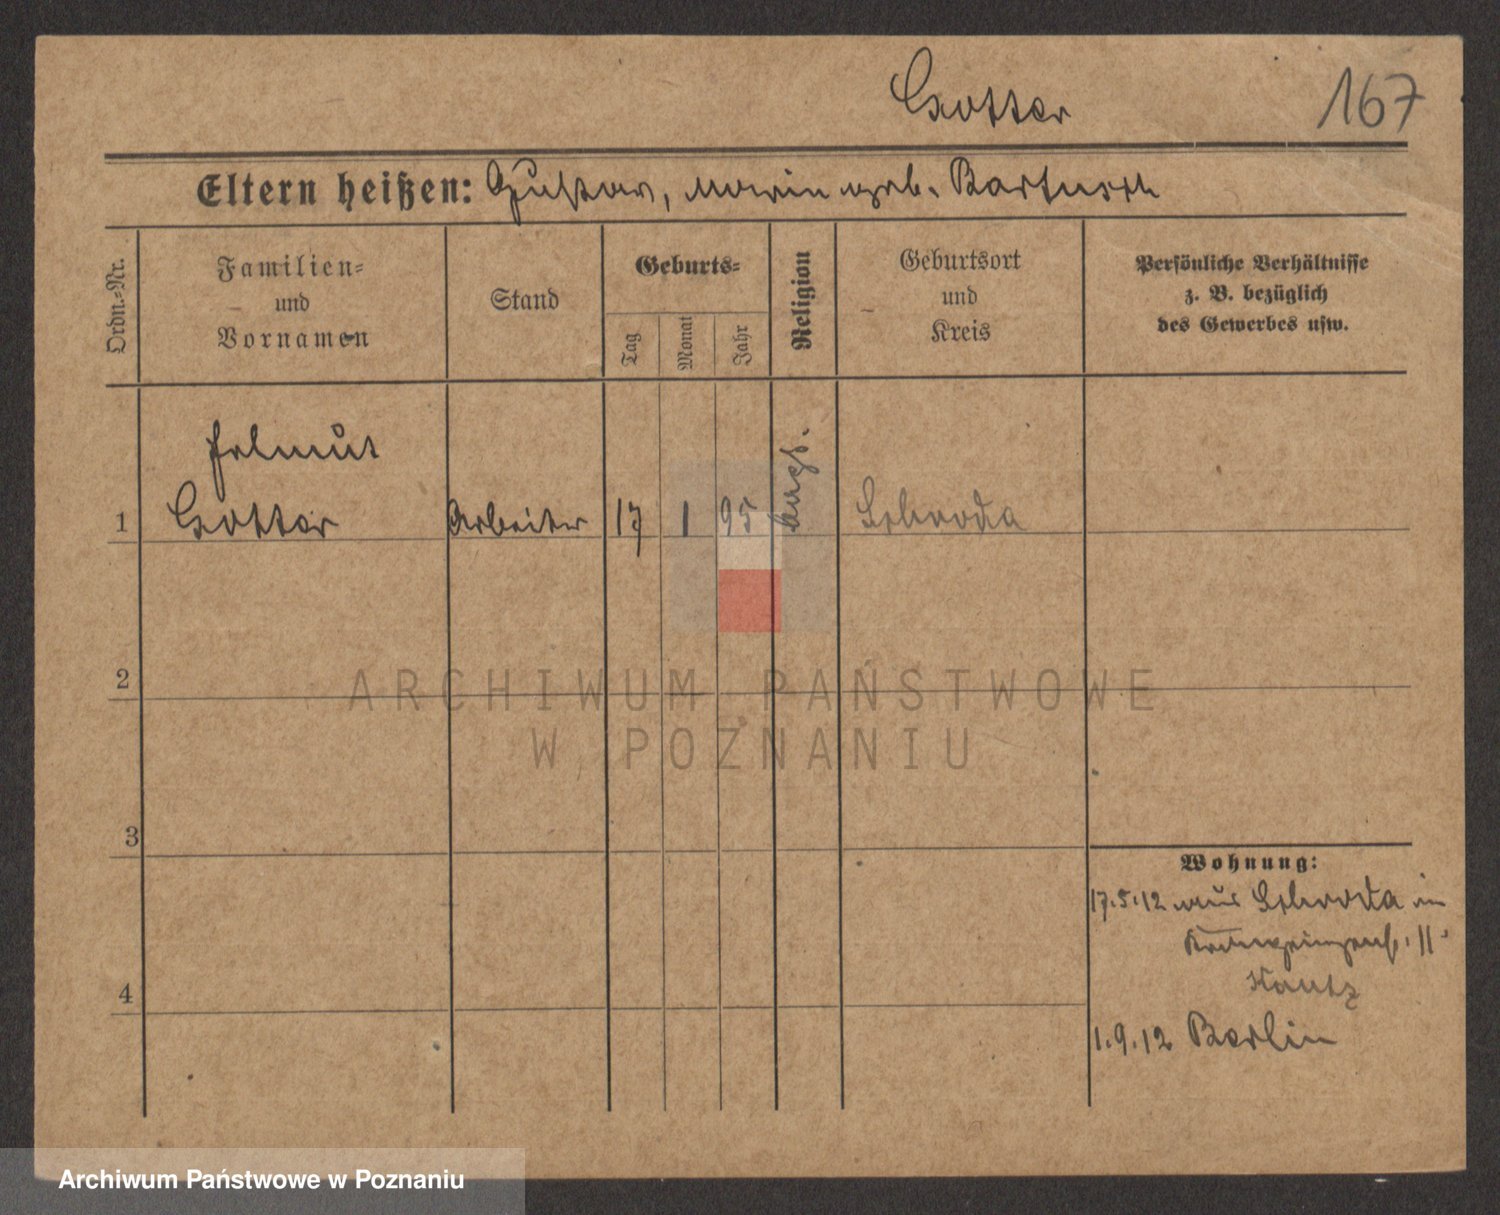 Gotter
167
Eltern heißen: Gustav, Maria geb. Bartusch
Ordn.=Nr.
Familien=
und
Vornamen
Stand
Geburts=
Tag
Monat
Jahr
Religion
Geburtsort
und
Kreis
Persönliche Verhältnisse
z. B. bezüglich
des Gewerbes usw.
Helmut
1 Gotter Arbeiter 17 1 95 evgl. Schroda
2
ARCHIWUM PAŃSTWOWE
W POZNANIU
3
Wohnung:
17.5.12 aus Schroda in
11
4
1.9.12 Berlin
Archiwum Państwowe w Poznaniu